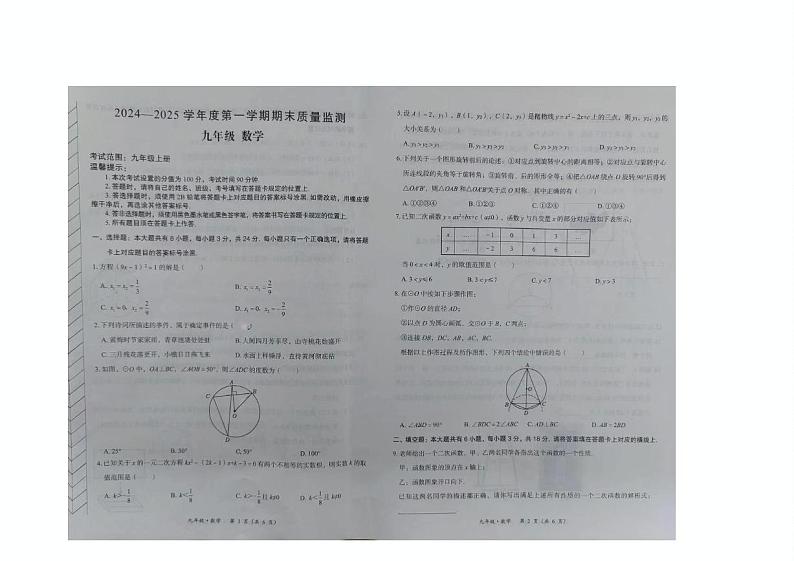 2024—2025 学年度第一学期期末质量监测
九年级 数学
考试范围：九年级上册
温馨提示：
1. 本次考试设置的分值为 100 分，考试时间 90 分钟.
2. 答题时，请将自己的姓名、班级、考号填写在答题卡规定的位置上.
3. 答选择题时，须使用 2B 铅笔将答题卡上对应题目的答案标号涂黑. 如需改动，用橡皮擦
擦干净后，再选涂其他答案标号.
4. 答非选择题时，须使用黑色墨水笔或黑色签字笔，将答案书写在答题卡规定的位置上.
5. 所有题目须在答题卡上作答.
一、选择题：本大题共有 8 小题，每小题 3 分，共 24 分. 每小题只有一个正确选项，请将答题
卡上对应题目的答案标号涂黑.
1. 方程 (9x－1)²＝1 的解是（　　）
A. x₁＝x₂＝1/3
B. x₁＝x₂＝2/9
C. x₁＝0，x₂＝2/9
D. x₁＝0，x₂＝－2/9
2. 下列诗词所描述的事件，属于确定事件的是（　　）
A. 黄梅时节家家雨，青草池塘处处蛙
B. 人间四月芳菲尽，山寺桃花始盛开
C. 三月桃花募更开，小楼日日燕飞来
D. 水面上秤锤浮，直待黄河彻底枯
3. 如图，⊙O 中，OA⊥BC，∠AOB＝50°，则∠ADC 的度数为（　　）
A
B
C
O
D
A. 25°
B. 30°
C. 50°
D. 100°
4. 已知关于 x 的一元二次方程 kx²－(2k－1)x+k－3＝0 有两个不相等的实数根，则实数 k 的取
值范围是（　　）
A. k>－1/8
B. k<1/8
C. k>－1/8 且 k≠0
D. k<1/8 且 k≠0
九年级・数学　第 1 页（共 6 页）
5. 设 A（－2，y₁），B（1，y₂），C（2，y₃）是抛物线 y＝x²－2x+c 上的三点，则 y₁，y₂，y₃ 的
大小关系为（　　）
A. y₁>y₃>y₂
B. y₁>y₂>y₃
C. y₃>y₂>y₁
D. y₃>y₁>y₂
6. 下列关于一个图形旋转前后的论述：①对应点到旋转中心的距离相等；②对应点与旋转中心
所连线段的夹角等于旋转角；③旋转前、后的图形全等；④把△OAB 绕点 O 旋转 90°后得到
△OA′B′，则△OAB 和△OA′B′关于点 O 对称. 其中正确的有（　　）
A. ①②③④
B. ①②③
C. ①②④
D. ①③④
7. 已知二次函数 y＝ax²+bx+c（a≠0），函数 y 与自变量 x 的部分对应值如下表所示：
x … －1 0 1 3 …
y … －2 3 6 6 …
当 0<x<4 时，y 的取值范围是（　　）
A. 3<y≤6
B. 3<y≤7
C. y<7
D. y>3
8. 在⊙O 中按如下步骤作图：
①作⊙O 的直径 AD；
②以点 D 为圆心画弧，交⊙O 于 B，C 两点；
③连接 DB，DC，AB，AC，BC.
根据以上作图过程及所作图形，下列四个结论中错误的是（　　）
A
O
B
C
D
A. ∠ABD＝90°
B. ∠BDC＝2∠ABC
C. AD⊥BC
D. AB＝2BD
二、填空题：本大题共有 6 小题，每小题 3 分，共 18 分. 请将答案填在答题卡上对应的横线上.
9. 老师给出一个二次函数，甲、乙两名同学各指出这个函数的一个性质.
甲：函数图象的顶点在 x 轴上；
乙：函数图象开口向下.
已知这两名同学的描述都正确，请你写出满足上述所有性质的一个二次函数的解析式：
九年级・数学　第 2 页（共 6 页）